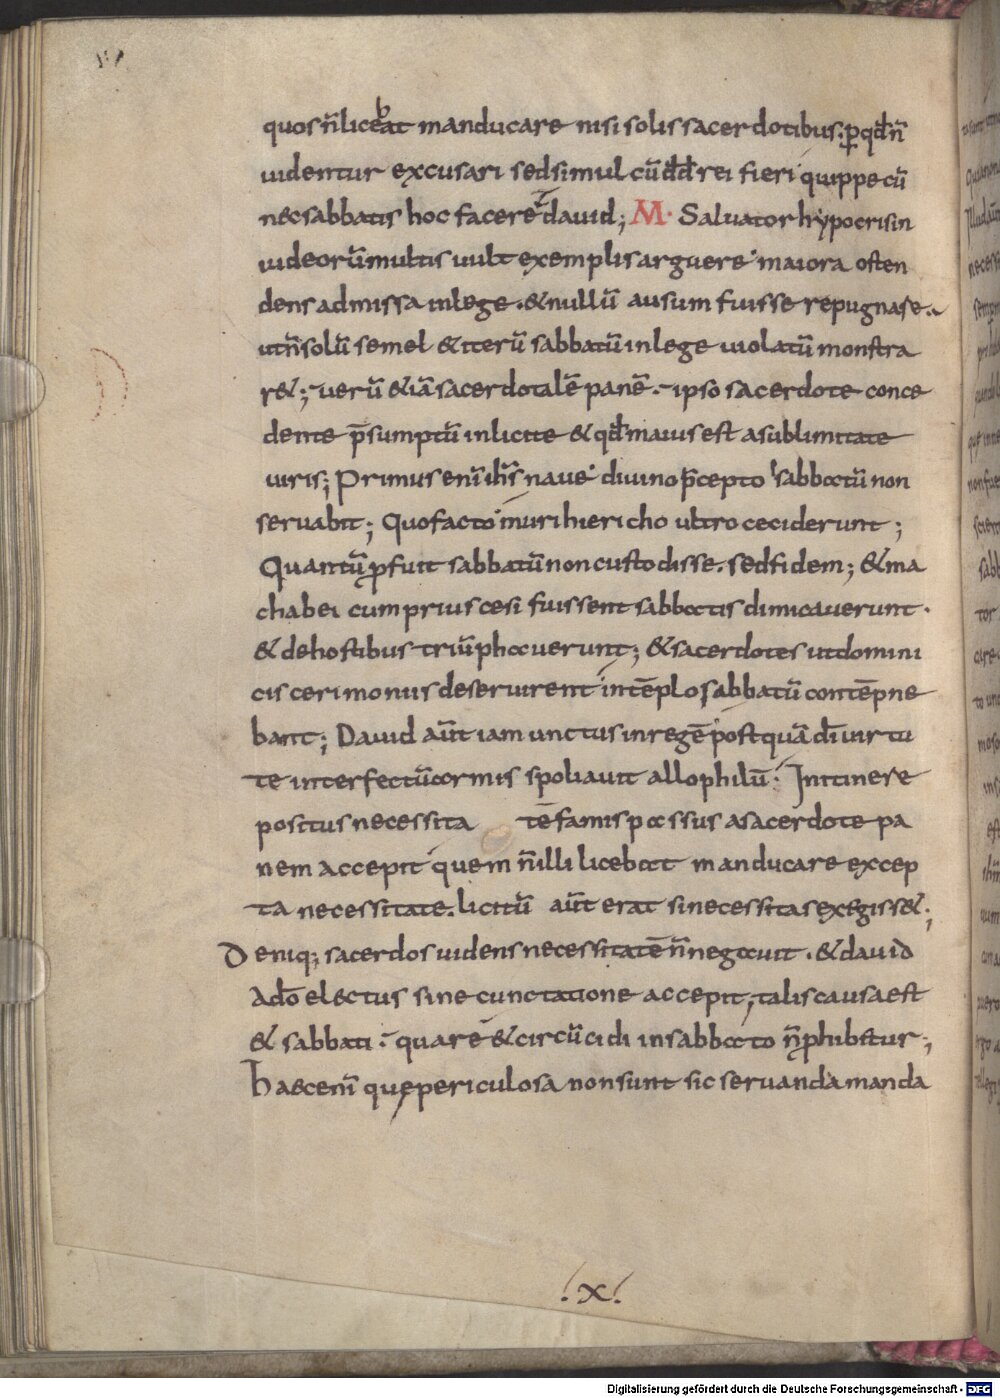 quos n̄ liceb́at manducare nisi solis sacerdotibus; ꝑ qđ n̄
uidentur excusari sed simul cū dđ rei fieri quippe cū
nec sabbatis hoc facere dauid; M· Saluator hypocrisin
uideorū multis uult exemplis arguere maiora osten
dens admissa in lege . & nullū ausum fuisse repugnare.
ut n̄ solū semel & iterū sabbatū in lege uiolatū monstra
r&; uerū & iā sacerdotalē panē . ipso sacerdote conce
dente p̄sumptū inlicite & qđ maius est a sublimitate
uiris; Primus enī ih̄s naue diuino p̄cepto sabbatū non
seruabit; Quo facto muri hiericho ultro ceciderunt;
Quantū ꝓfuit sabbatū non custodisse . sed fidem; & ma
chabei cum prius cesi fuissent sabbatis dimicauerunt .
& de hostibus triūphauerunt; & sacerdotes ut domini
cis cerimoniis deseruirent in tēplo sabbatū contēpne
bant; Dauid aūt iam unctus in regē postquā dī uirtu
te interfectū armis spoliauit allophilū; In itinere
positus necessita tē famis passus a sacerdote pa
nem accepit quem n̄ illi licebat manducare excep
ta necessitate . licitū aūt erat si necessitas exegiss&;
Deniq; sacerdos uidens necessitatē n̄ negauit . & dauid
a dō electus sine cunctatione accepit; talis causa est
& sabbati . quare & circūcidi in sabbato n̄ ꝓhibetur;
Haec enī quę periculosa non sunt sic seruanda manda
x
Digitalisierung gefördert durch die Deutsche Forschungsgemeinschaft - DFG